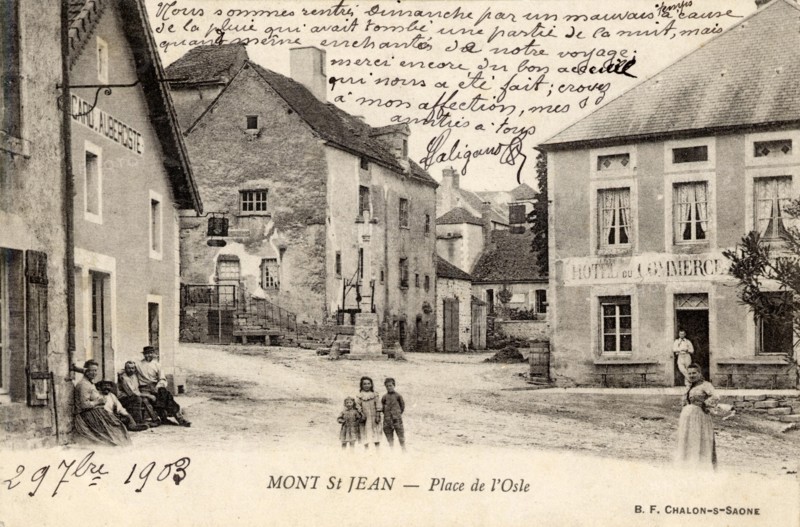 Nous sommes rentré Dimanche par un mauvais temps à cause
de la pluie qui avait tombé une partie de la nuit, mais
quand meme enchantés de notre voyage;
merci encore du bon acceuill
qui nous a été fait; croyez
à mon affection, mes
amitiés à tous
CARD. AUBERGISTE
HÔTEL DU COMMERCE
29 7bre 1903
MONT St JEAN — Place de l'Osle
B. F. CHALON-S-SAONE